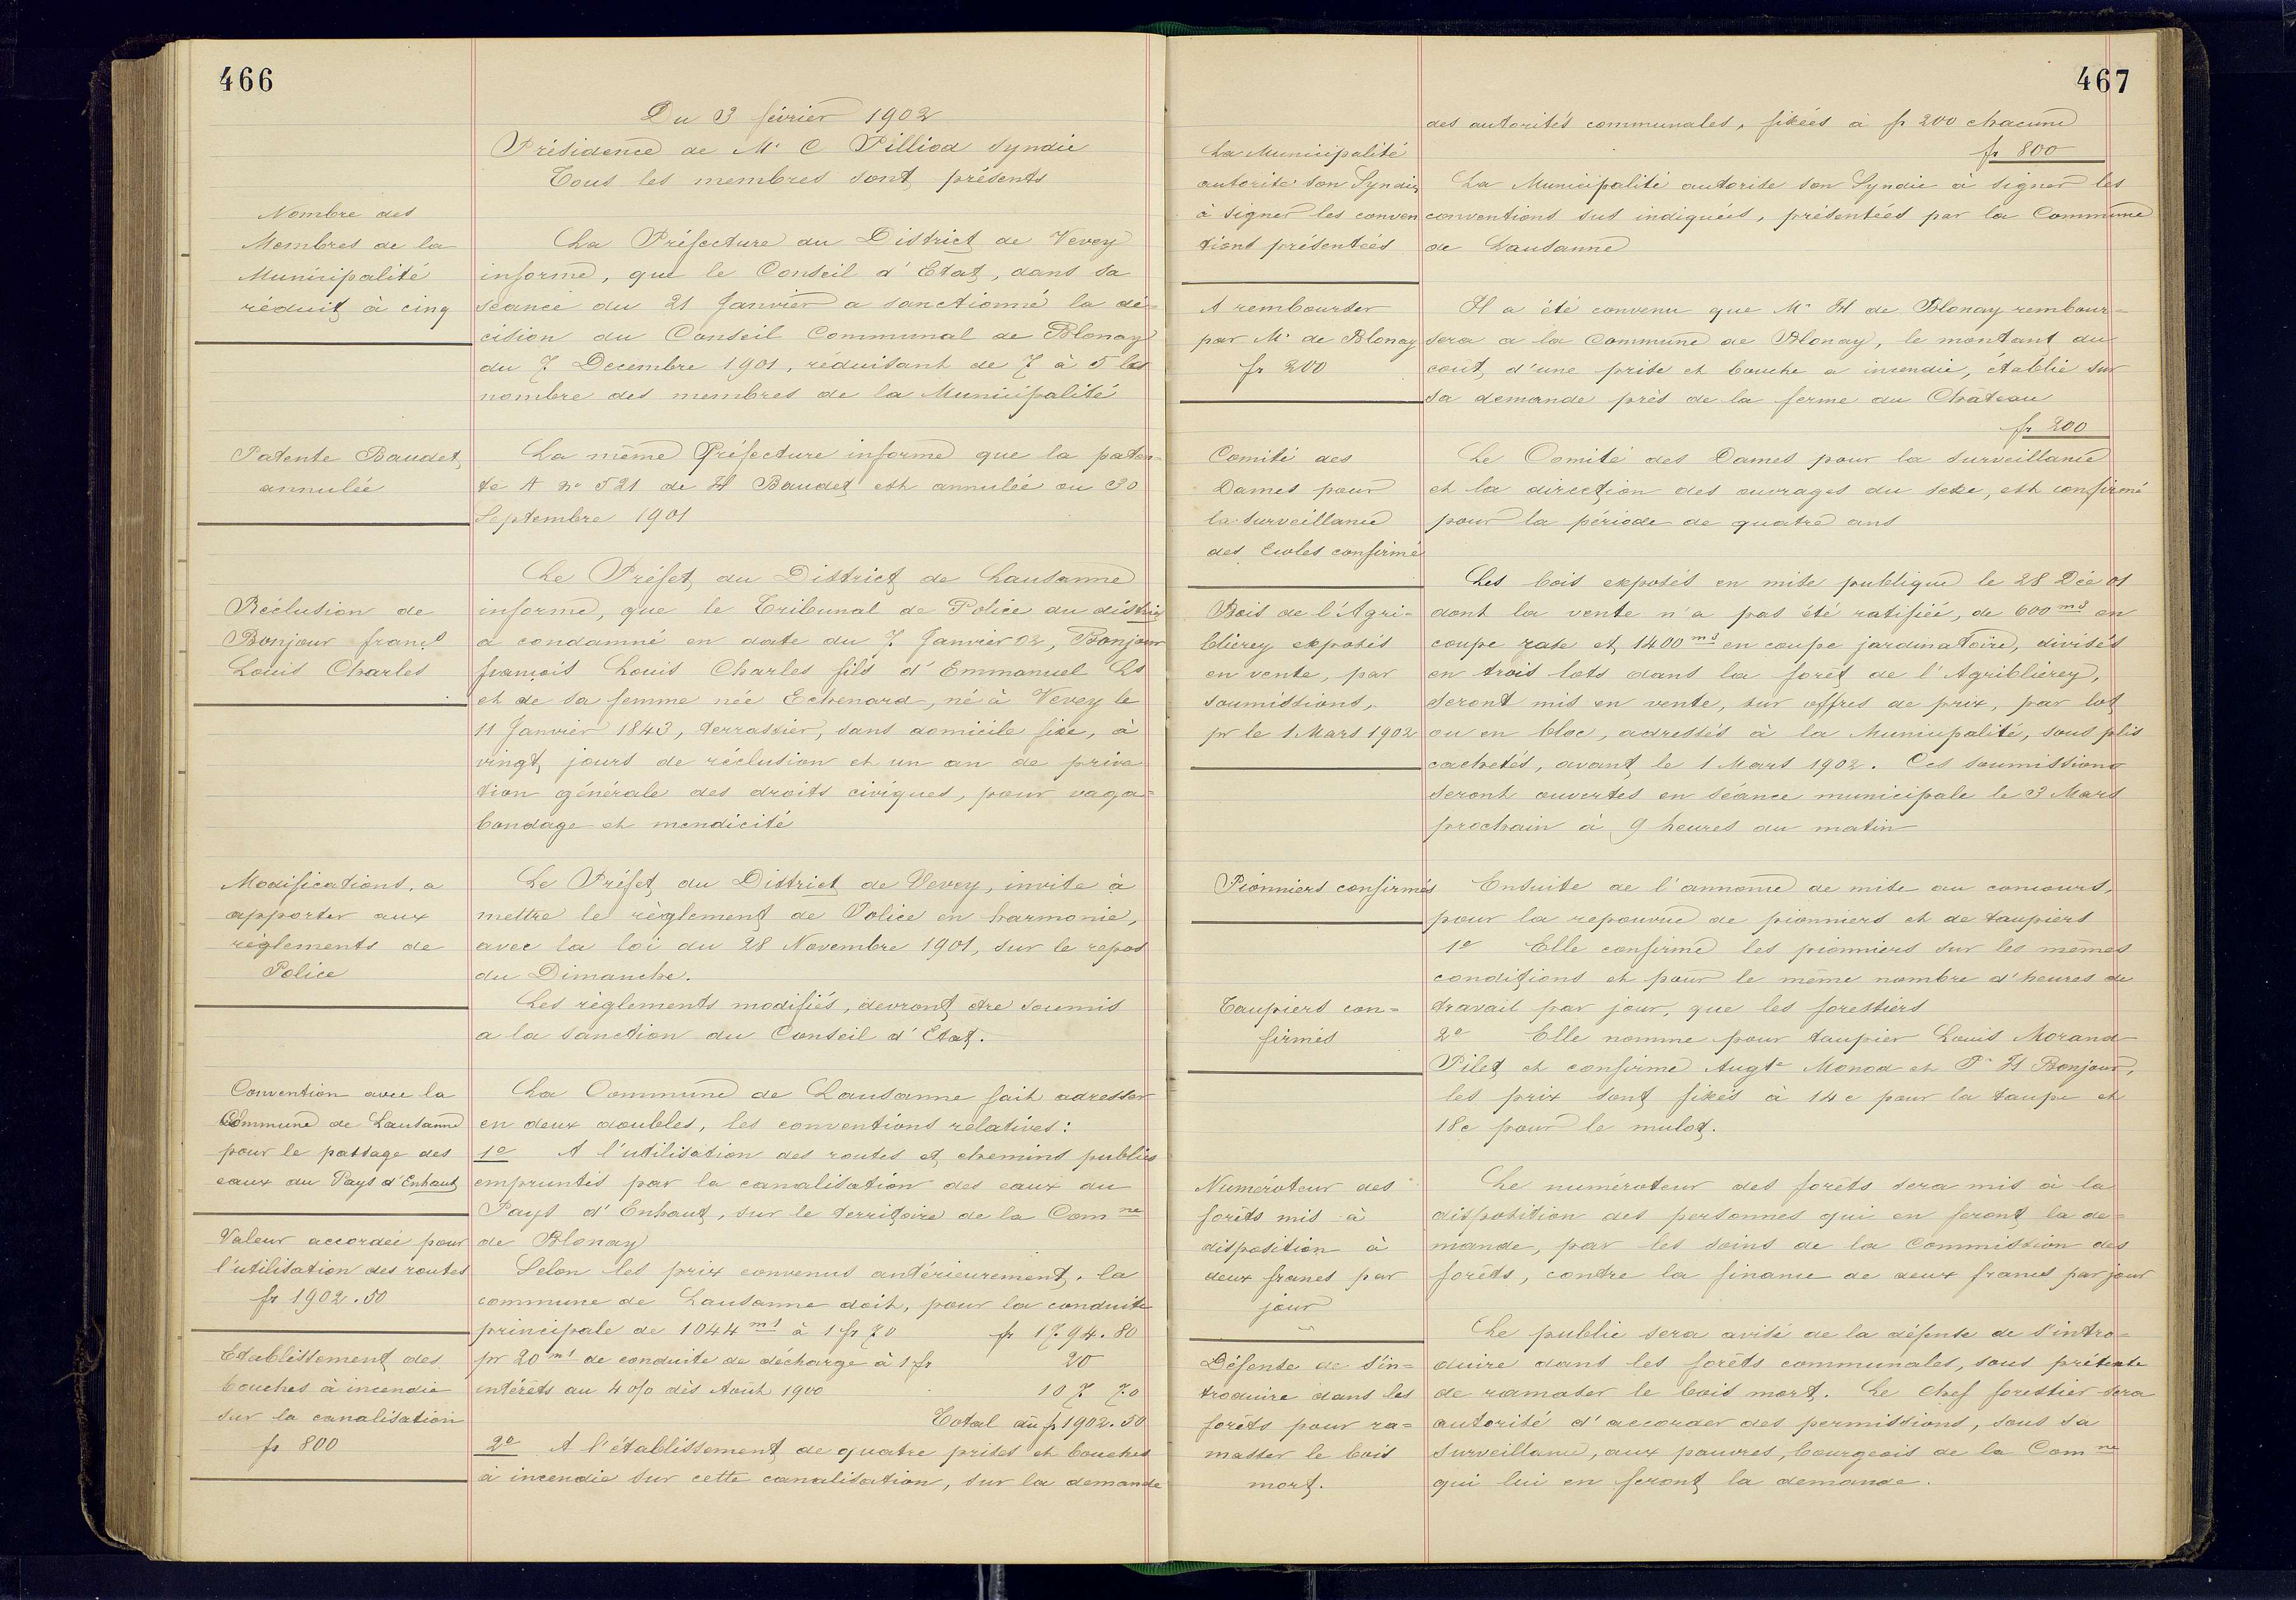 466
Du 3 février 1902
Présidence de Mr C Pilliod Syndic
Tous les membres sont présents
Nombre des
Membres de la
Municipalité
réduit à cinq
La Préfecture du District de Vevey
informe, que le Conseil d'Etat, dans sa
séance du 21 Janvier a sanctionné la dé-
cision du Conseil Communal de Blonay
du 7 Décembre 1901, réduisant de 7 à 5 le
nombre des membres de la Municipalité
Patente Baudet
annulée
La même Préfecture informe que la paten-
te A No 521 de H Baudet est annulée au 30
Septembre 1901
Réclusion de
Bonjour Franço
Louis Charles
Le Préfet du District de Lausanne
informe, que le Tribunal de Police du district
a condamné en date du 7 Janvier 02, Bonjour
françois Louis Charles fils d'Emmanuel Ls
et de sa femme née Echenard, né à Vevey le
11 Janvier 1843, terrassier, sans domicile fixe, à
vingt jours de réclusion et un an de priva
tion générale des droits civiques, pour vaga-
bondage et mendicité
Modifications, a
apporter aux
règlements de
Police
Le Préfet du District de Vevey, invite à
mettre le règlement de Police en harmonie,
avec la loi du 28 Novembre 1901, sur le repos
du Dimanche.
Les règlements modifiés, devront être soumis
a la sanction du Conseil d'Etat.
Convention avec la
Commune de Lausanne
pour le passage des
eaux du Pays d'Enhaut
La Commune de Lausanne fait adresser
en deux doubles, les conventions relatives:
1o A l'utilisation des routes et chemins publics
empruntés par la canalisation des eaux du
Pays d'Enhaut, sur le territoire de la Comne
de Blonay
Valeur accordée pour
l'utilisation des routes
fr 1902.50
Selon les prix convenus antérieurement, la
commune de Lausanne doit, pour la conduite
principale de 1044 ms à 1 fr 70 fr 17.94.80
pr 20 ms de conduite de décharge à 1 fr 20
intérêts au 4 o/o dès Août 1900 107 70
Total dû fr 1902.50
Etablissement des
bouches à incendie
sur la canalisation
fr 800
2o A l'établissement de quatre prises et bouches
à incendie sur cette canalisation, sur la demande
467
des autorités communales, fixées à fr 200 chacune
fr 800
La Municipalité
autorise son Syndic
à signer les conven
tions présentées
La Municipalité autorise son Syndic à signer les
conventions sus indiquées, présentées par la Commune
de Lausanne
A rembourser
par Mr de Blonay
fr 200
Il a été convenu que Mr H de Blonay rembour-
sera a la Commune de Blonay, le montant du
coût, d'une prise et bouche a incendie, établie sur
sa demande près de la ferme du Château
fr 200
Comité des
Dames pour
la surveillance
des Ecoles confirmé
Le Comité des Dames pour la surveillance
et la direction des ouvrages du sexe, est confirmé
pour la période de quatre ans
Bois de l'Agri-
blierey exposés
en vente, par
soumissions,
pr le 1 Mars 1902
Les bois exposés en mise publique le 28 Déc 01
dont la vente n'a pas été ratifiée, de 600 m3 en
coupe rase et 1400 m3 en coupe jardinatoire, divisés
en trois lots dans la forêt de l'Agriblierey,
seront mis en vente, sur offres de prix, par lot
ou en bloc, adressés à la Municipalité, sous plis
cachetés, avant le 1 Mars 1902. Ces soumissions
seront ouvertes en séance municipale le 3 Mars
prochain à 9 heures du matin
Pionniers confirmés
Ensuite de l'annonce de mise au concours,
pour la repourvue de pionniers et de taupiers
1o Elle confirme les pionniers sur les mêmes
conditions et pour le même nombre d'heures de
travail par jour, que les forestiers
Taupiers con=
firmés
2o Elle nomme pour taupier Louis Morand
Pilet et confirme Augte Monod et Fs H Bonjour,
les prix sont fixés à 14 c pour la taupe et
18c pour le mulot.
Numéroteur des
forêts mis à
disposition à
deux francs par
jour
Le numéroteur des forêts sera mis à la
disposition des personnes qui en feront la de-
mande, par les soins de la Commission des
forêts, contre la finance de deux francs par jour
Défense de s'in=
troduire dans les
forêts pour ra=
masser le bois
mort.
Le public sera avisé de la défense de s'intro-
duire dans les forêts communales, sous prétexte
de ramasser le bois mort. Le chef forestier sera
autorisé d'accorder des permissions, sous sa
surveillance, aux pauvres, bourgeois de la Comne
qui lui en feront la demande.